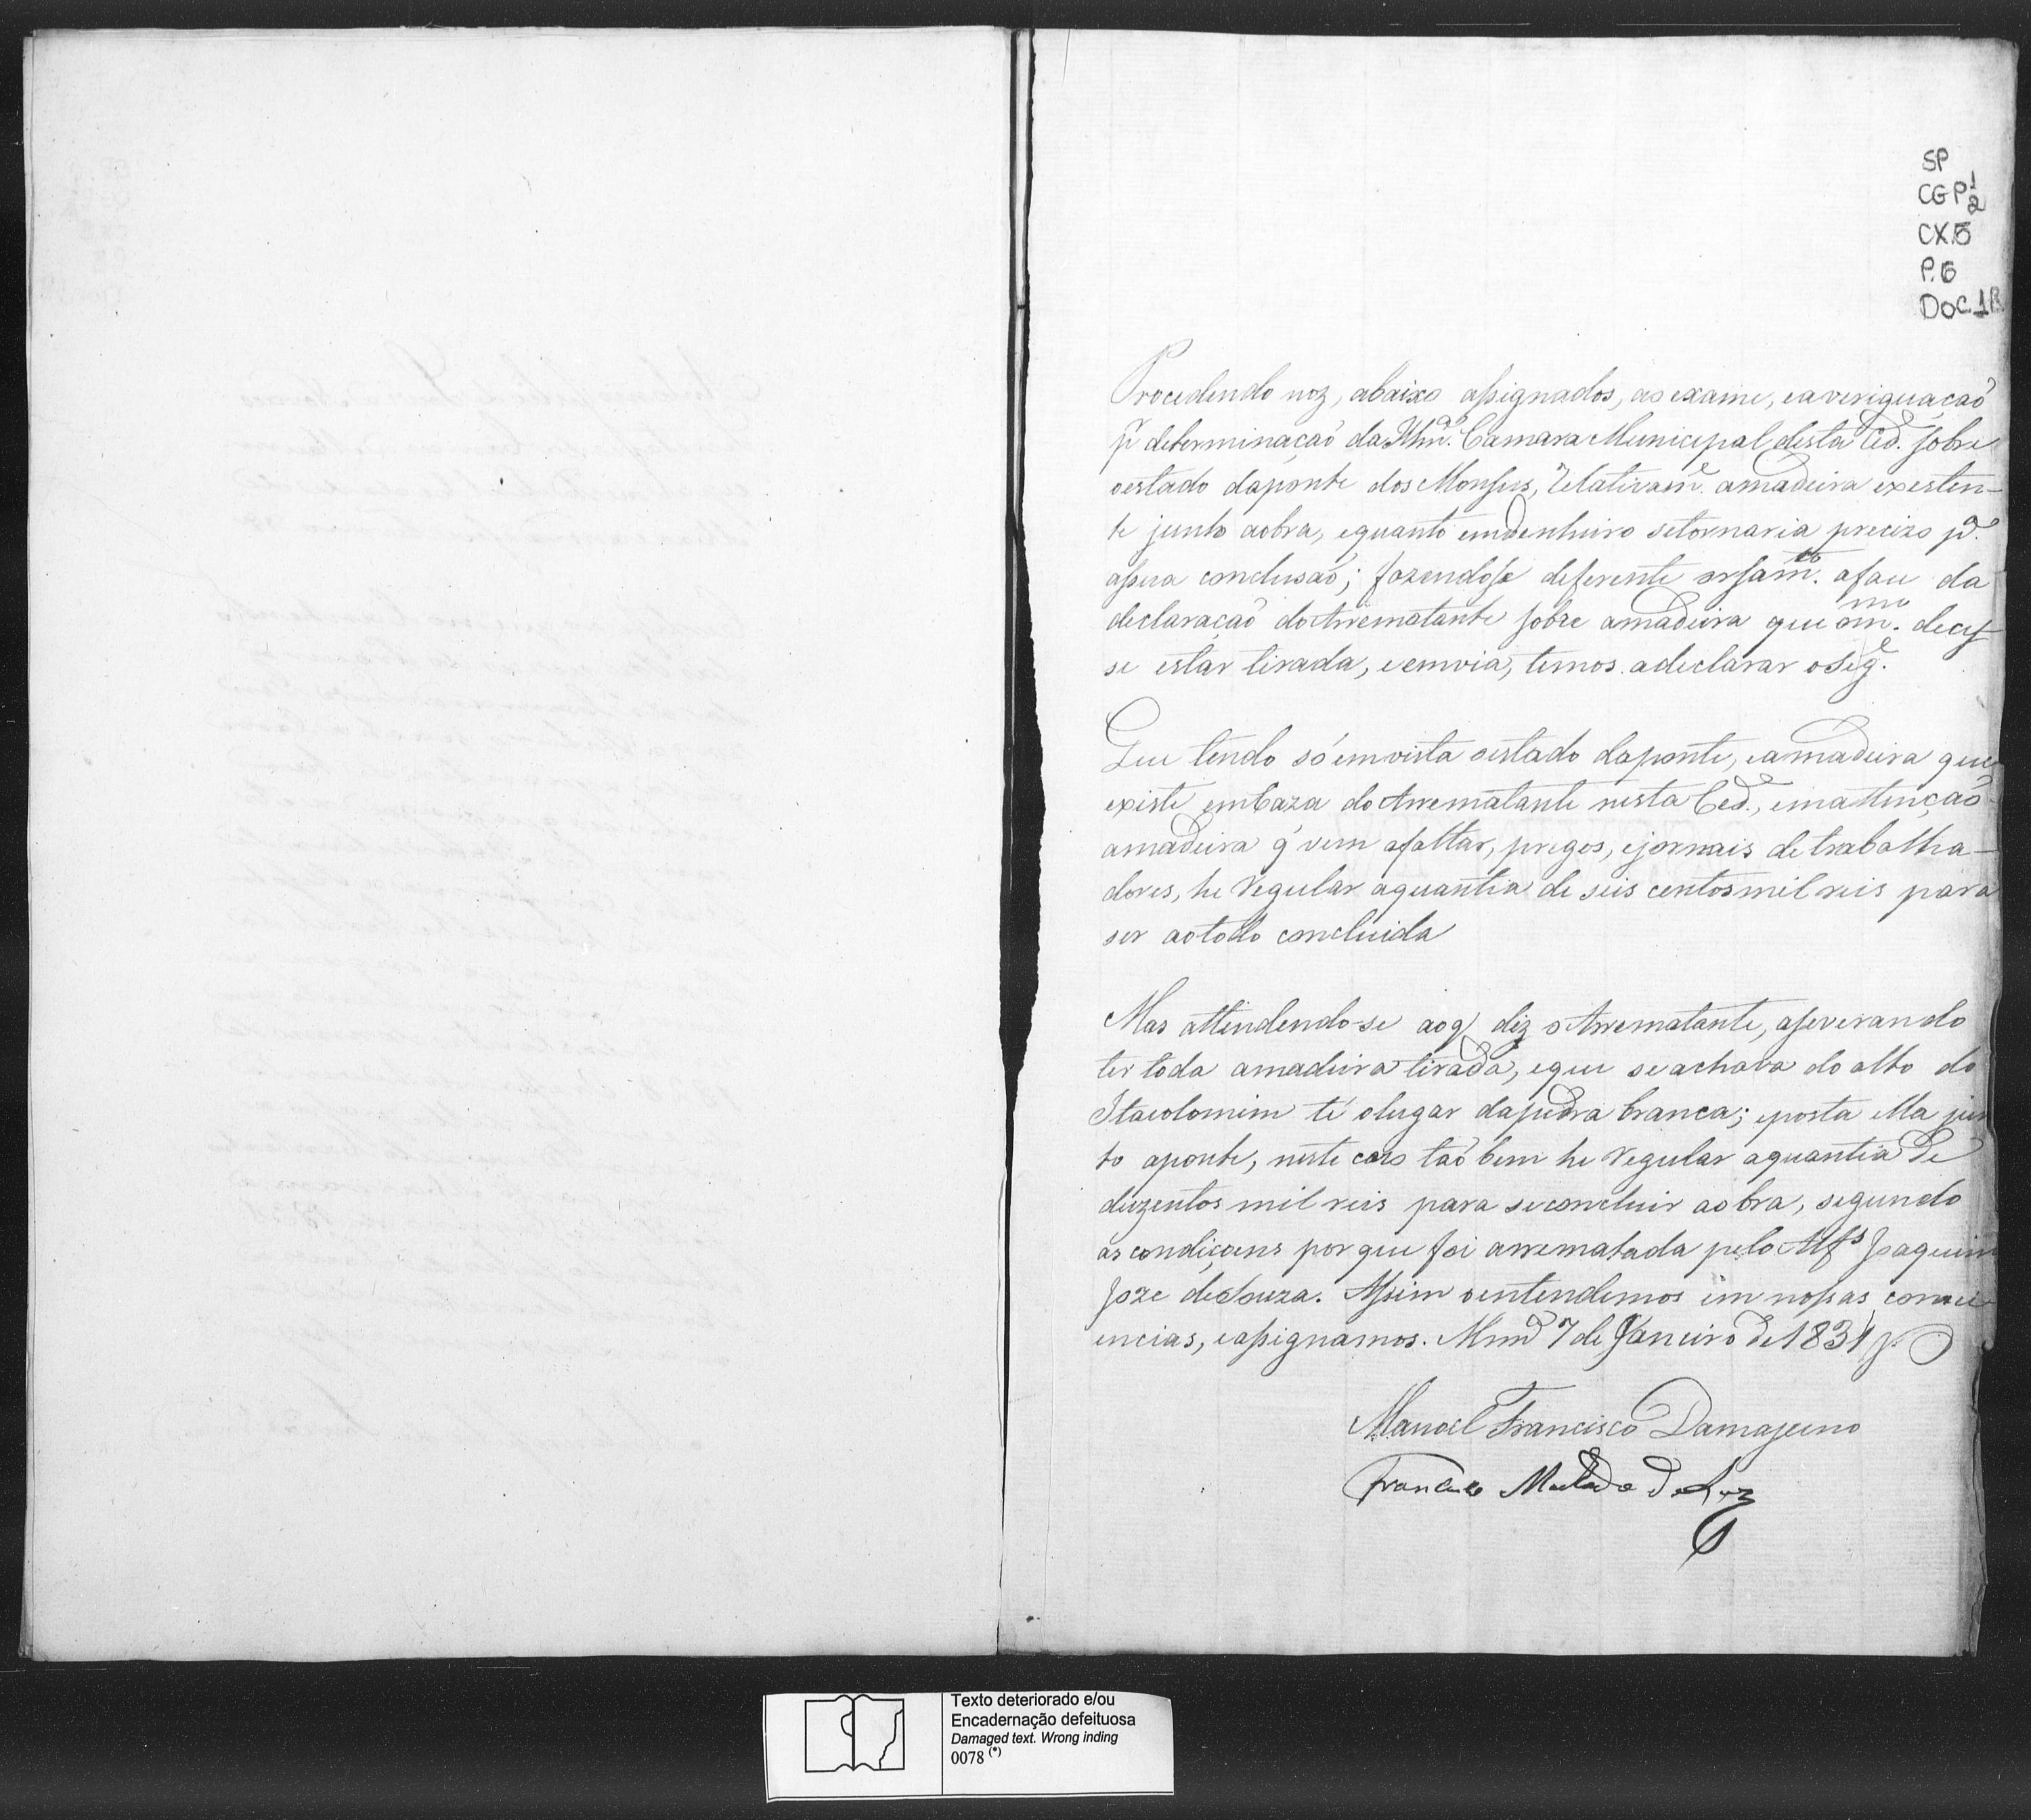 SP
CGP 1/2
CX.5
P.6
DOC.1
Procedendo noz, abaixo assignados, ao exame, eaveriguaçaõ
p.r determinaçaõ da Illm.ª Camara Municipal desta Cid.e sobre
oestado daponte dos Monsus, relativam.e amadeira existen-
te junto aobra, equanto emdenheiro setornaria precizo p.ª
assua conclusaõ; fazendosse deferente orsam.to afaci da
declaraçaõ do Arrematante sobre amadeira que om.mo decej
se estar tirada, eemvia, temos adeclarar oseg.e
Que tendo só emvista oestado daponte, eamadeira que
existe emCaza do Arrematante nesta Cid.e, emattençaõ
amadeira q' vem afaltar, pregos, ejornais de trabalha-
dores, he regular aquantia de seis centosmil reis para
ser aotodo concluida
Mas attendendo-se aoq' diz o Arrematante, aseverando
ter toda amadeira tirada, eque seachava do alto do
Itacolomim té olugar dapedra branca; eposta ella jun
to aponte, neste cazo taõ bem he regular aquantia de
duzentos mil reis para seconcluir aobra, segundo
as condiçoens porque foi arrematada pelo Alf.s Joaquim
Joze deSouza. Assim oentendemos em nossas consci
encias, eassignamos. 7 de Janeiro de 1834
Manoel Francisco Damasceno
Francisco Machado da Luz
Texto deteriorado e/ou
Encadernação defeituosa
Damaged text. Wrong inding
0078 (*)